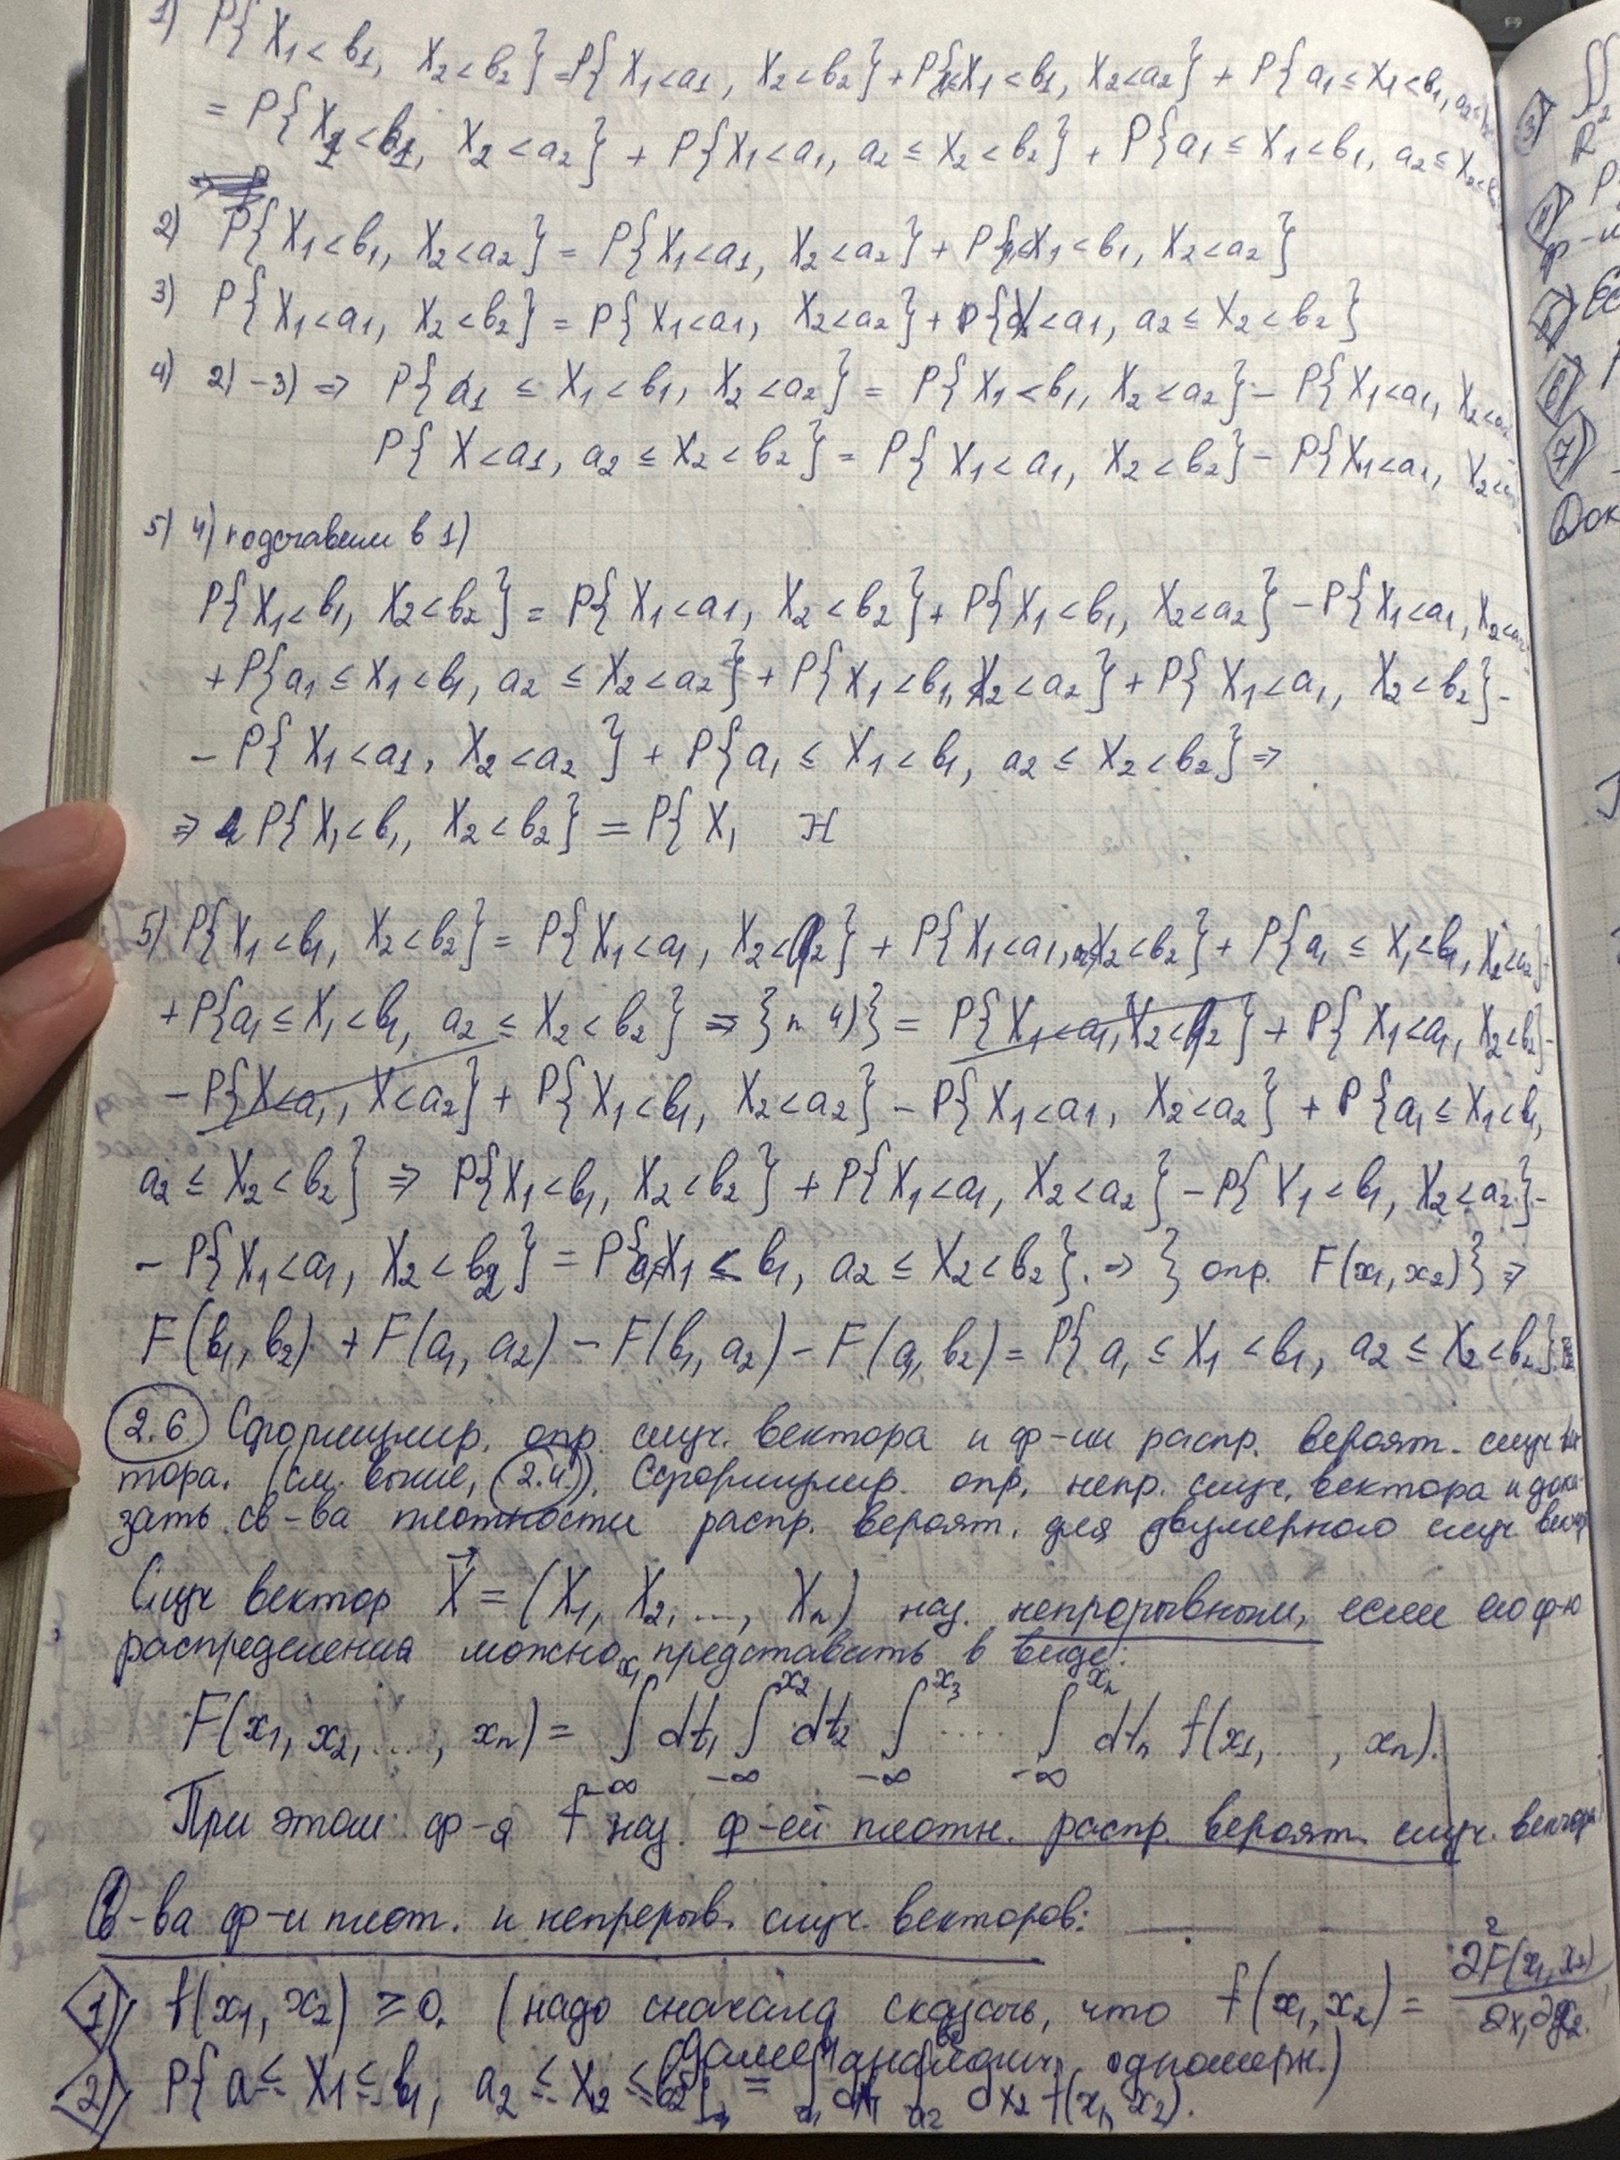 1) P{X₁<b₁, X₂<b₂}=P{X₁<a₁, X₂<b₂}+P{a₁≤X₁<b₁, X₂<a₂} + P{a₁≤X₁<b₁, a₂≤
= P{X₁<b₁, X₂<a₂} + P{X₁<a₁, a₂≤X₂<b₂} + P{a₁≤X₁<b₁, a₂≤X₂<b
2) P{X₁<b₁, X₂<a₂} = P{X₁<a₁, X₂<a₂} + P{a₁≤X₁<b₁, X₂<a₂}
3) P{X₁<a₁, X₂<b₂} = P{X₁<a₁, X₂<a₂} + P{X<a₁, a₂≤X₂<b₂}
4) 2)-3) ⇒ P{a₁≤X₁<b₁, X₂<a₂} = P{X₁<b₁, X₂<a₂} - P{X₁<a₁, X₂<a₂
P{X<a₁, a₂≤X₂<b₂} = P{X₁<a₁, X₂<b₂} - P{X₁<a₁, X₂<
5) 4) подставим в 1)
P{X₁<b₁, X₂<b₂} = P{X₁<a₁, X₂<b₂} + P{X₁<b₁, X₂<a₂} - P{X₁<a₁, X₂<a₂
+P{a₁≤X₁<b₁, a₂≤X₂<a₂} + P{X₁<b₁, X₂<a₂} + P{X₁<a₁, X₂<b₂} -
- P{X₁<a₁, X₂<a₂} + P{a₁≤X₁<b₁, a₂≤X₂<b₂} ⇒
⇒ P{X₁<b₁, X₂<b₂} = P{X₁
5) P{X₁<b₁, X₂<b₂} = P{X₁<a₁, X₂<a₂} + P{X₁<a₁, a₂≤X₂<b₂} + P{a₁≤X₁<b₁, X₂<a₂}
+P{a₁≤X₁<b₁, a₂≤X₂<b₂} ⇒ {п 4)} = P{X₁<a₁, X₂<a₂} + P{X₁<a₁, X₂<b₂} -
- P{X<a₁, X<a₂} + P{X₁<b₁, X₂<a₂} - P{X₁<a₁, X₂<a₂} + P{a₁≤X₁<b₁,
a₂≤X₂<b₂} ⇒ P{X₁<b₁, X₂<b₂} + P{X₁<a₁, X₂<a₂} - P{X₁<b₁, X₂<a₂} -
- P{X₁<a₁, X₂<b₂} = P{a₁≤X₁<b₁, a₂≤X₂<b₂}. ⇒ {опр. F(x₁, x₂)} ⇒
F(b₁, b₂) + F(a₁, a₂) - F(b₁, a₂) - F(a₁, b₂) = P{a₁≤X₁<b₁, a₂≤X₂<b₂}
2.6. Сформулир. опр. случ. вектора и ф-ии распр. вероят. случ. век
тора. (см. выше, 2.4.). Сформулир. опр. непр. случ. вектора и дока-
зать св-ва плотности распр. вероят. для двумерного случ. вектор
Случ вектор X⃗ = (X₁, X₂, ..., Xₙ) наз. непрорывным, если его ф-ю
распределения можно представить в виде:
F(x₁, x₂, ..., xₙ) = ∫_{-∞}^{x₁} dt₁ ∫_{-∞}^{x₂} dt₂ ∫_{-∞}^{x₃} .... ∫_{-∞}^{xₙ} dtₙ f(x₁, ..., xₙ).
При этом ф-я f наз. ф-ей плотн. распр. вероят. случ. вектора
Св-ва ф-и плот. и непрерыв. случ. векторов:
1) f(x₁, x₂) ≥ 0. (надо сначала сказать, что f(x₁, x₂) = ∂²F(x₁, x₂)/∂x₁∂x₂.
далее аналогич. одномерн.)
2) P{a≤X₁≤b₁, a₂≤X₂≤b₂} = ∫_{a₁}^{b₁} dx₁ ∫_{a₂}^{b₂} dx₂ f(x₁, x₂).
3) ∬
R²
4)
ф-и
5) Ес
6)
7)
Док